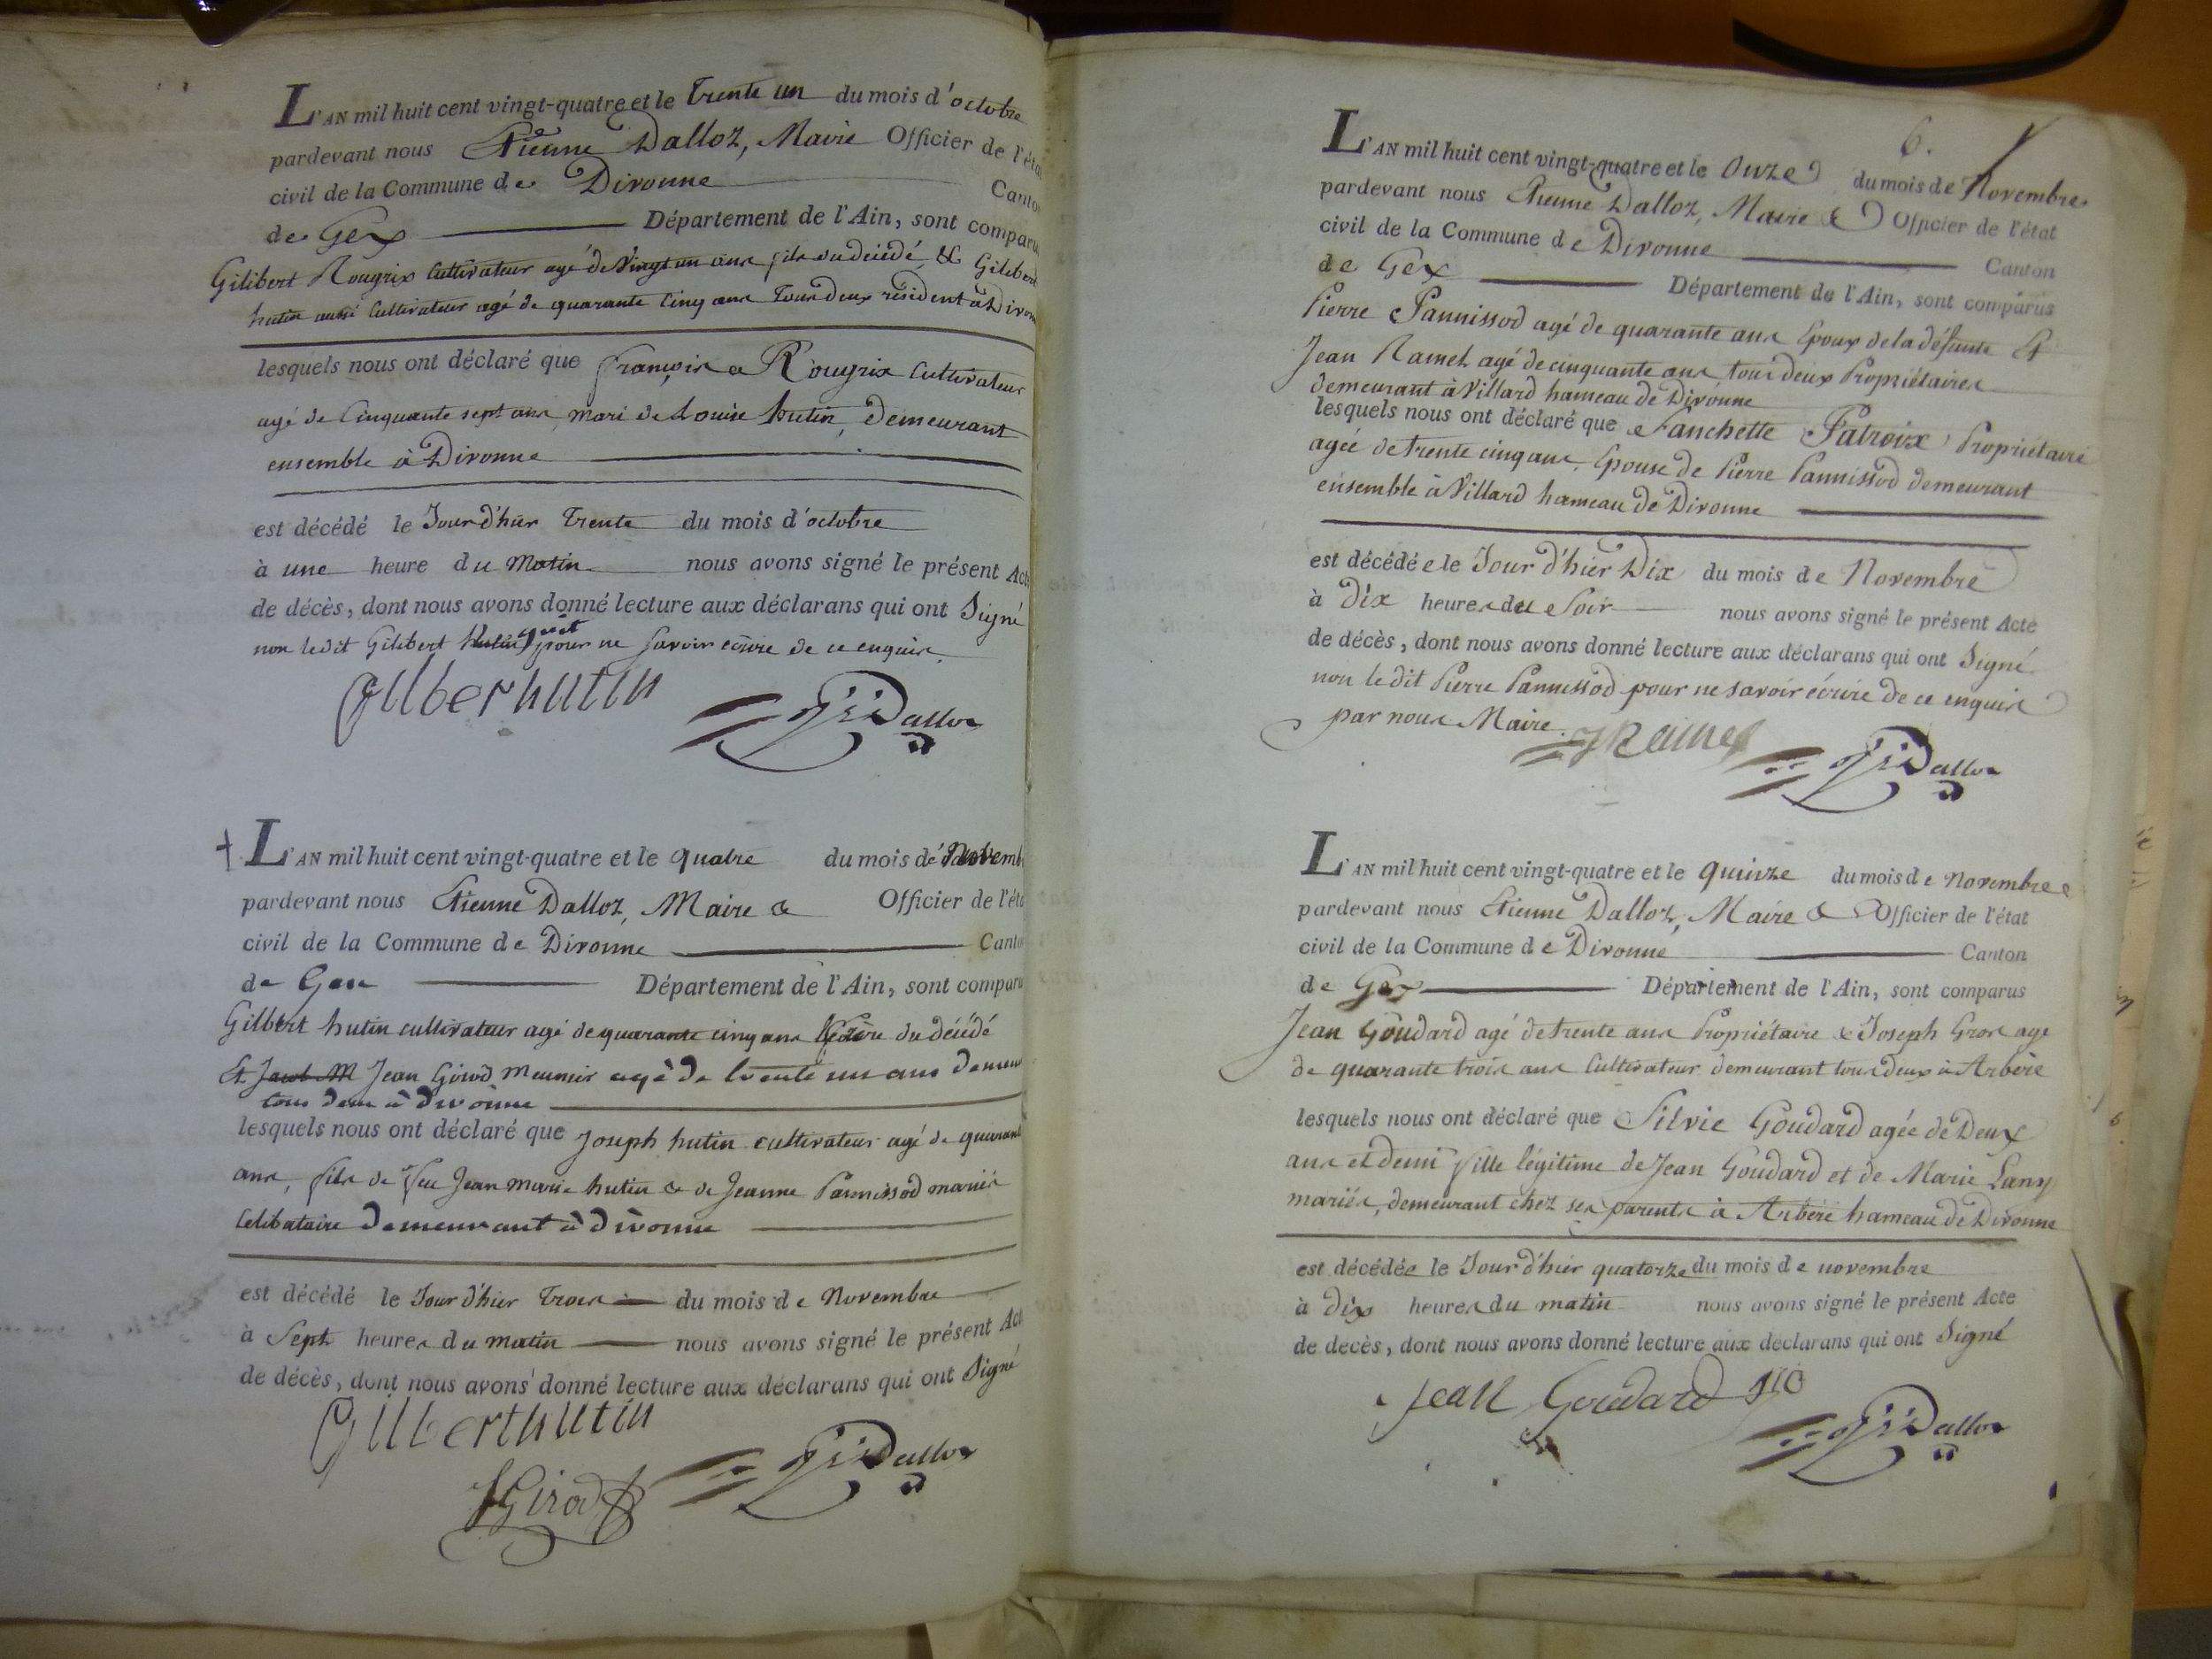 L'AN mil huit cent vingt-quatre et le trente un du mois d'octobre
pardevant nous Etienne Dalloz, Maire Officier de l'éta
civil de la Commune de Divonne Canto
de Gex Département de l'Ain, sont comparu
Gilibert Rougrix Cultivateur agé de Vingt un ans fils du décédé & Gilibert
hutin aussi Cultivateur agé de quarante Cinq ans Tous deux résident à Divonn
lesquels nous ont déclaré que françois Rougrix Cultivateur
agé de Cinquante sept ans, mari de Louise hutin, demeurant
ensemble à Divonne
est décédé le Jour d'hier Trente du mois d'octobre
à une heure du Matin nous avons signé le présent Act
de décès, dont nous avons donné lecture aux déclarans qui ont Signé
non le dit Gilibert pour ne savoir écrire de ce enquis.
Gilberhutin Dalloz
L'AN mil huit cent vingt-quatre et le quatre du mois de Novemb
pardevant nous Etienne Dalloz, Maire & Officier de l'éta
civil de la Commune de Divonne Canto
de Gex Département de l'Ain, sont comparu
Gilbert hutin cultivateur agé de quarante cinq ans frère du décédé
Et Jacob M Jean Girod Meunier agé de trente un ans demeu
tous deux à divonne
lesquels nous ont déclaré que Joseph hutin cultivateur agé de quarant
ans, fils de feu Jean Marie hutin & de Jeanne Pannissod mariés
Celibataire demeurant à divonne
est décédé le Jour d'hier Trois du mois de Novembre
à Sept heures du matin nous avons signé le présent Act
de décès, dont nous avons donné lecture aux déclarans qui ont Signé
Gilberthutin
JGirod Dalloz
6.
L'AN mil huit cent vingt-quatre et le Onze du mois de Novembre
pardevant nous Etienne Dalloz, Maire & Officier de l'état
civil de la Commune de Divonne Canton
de Gex Département de l'Ain, sont comparus
Pierre Pannissod agé de quarante ans Epoux de la défunte Et
Jean Ramel agé de cinquante ans tous deux Propriétaires
demeurant à Villard hameau de Divonne
lesquels nous ont déclaré que Fanchette Patroix Propriétaire
agée de trente cinq ans, Epouse de Pierre Pannissod demeurant
ensemble à Villard hameau de Divonne
est décédée le Jour d'hier Dix du mois de Novembre
à Dix heures du Soir nous avons signé le présent Acte
de décès, dont nous avons donné lecture aux déclarans qui ont Signé
non le dit Pierre Pannissod pour ne savoir écrire de ce enquis
par nous Maire. JRamel Dalloz
L'AN mil huit cent vingt-quatre et le quinze du mois de Novembre
pardevant nous Etienne Dalloz, Maire & Officier de l'état
civil de la Commune de Divonne Canton
de Gex Département de l'Ain, sont comparus
Jean Goudard agé de trente ans Propriétaire & Joseph Gros agé
de quarante trois ans Cultivateur demeurant tous deux à Arbère
lesquels nous ont déclaré que Silvie Goudard agée de Deux
ans et demi fille légitime de Jean Goudard et de Marie Lany
mariés, demeurant chez ses parents à Arbère hameau de Divonne
est décédée le Jour d'hier quatorze du mois de novembre
à dix heures du matin nous avons signé le présent Acte
de decès, dont nous avons donné lecture aux declarans qui ont Signé
Jean Goudard Dalloz